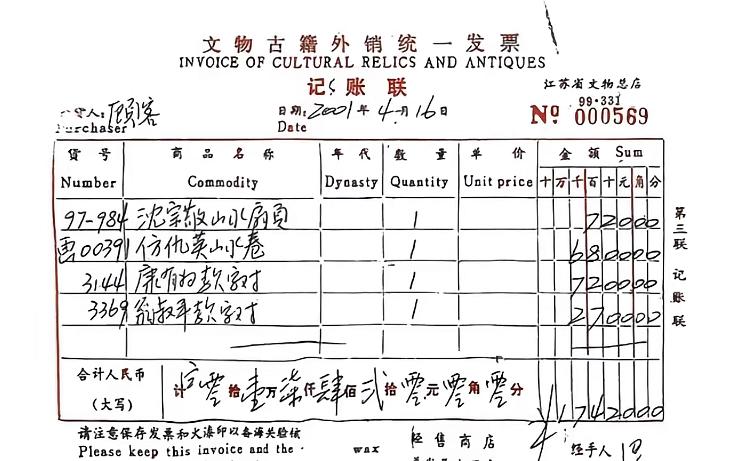 文物古籍外销统一发票
INVOICE OF CULTURAL RELICS AND ANTIQUES
记账联
江苏省文物总店
99·331
Nº 000569
人:顾客
Purchaser
日期:2001年4月16日
Date
货号 商品名称 年代 数量 单价 金额 Sum
Number Commodity Dynasty Quantity Unit price 十万千百十元角分
97-984 沈宗敬山水扇页 1 72000
曹00391 仿仇英山水卷 1 680000
3144 康有为款字对 1 720000
3369 翁叔平款字对 1 270000
合计人民币
(大写)
计 零拾壹万柒仟肆佰贰拾零元零角零分 ¥1742000
第三联 记账联
请注意保存发票和火漆印以备海关验核
Please keep this invoice and the
wax
经售商店
经手人